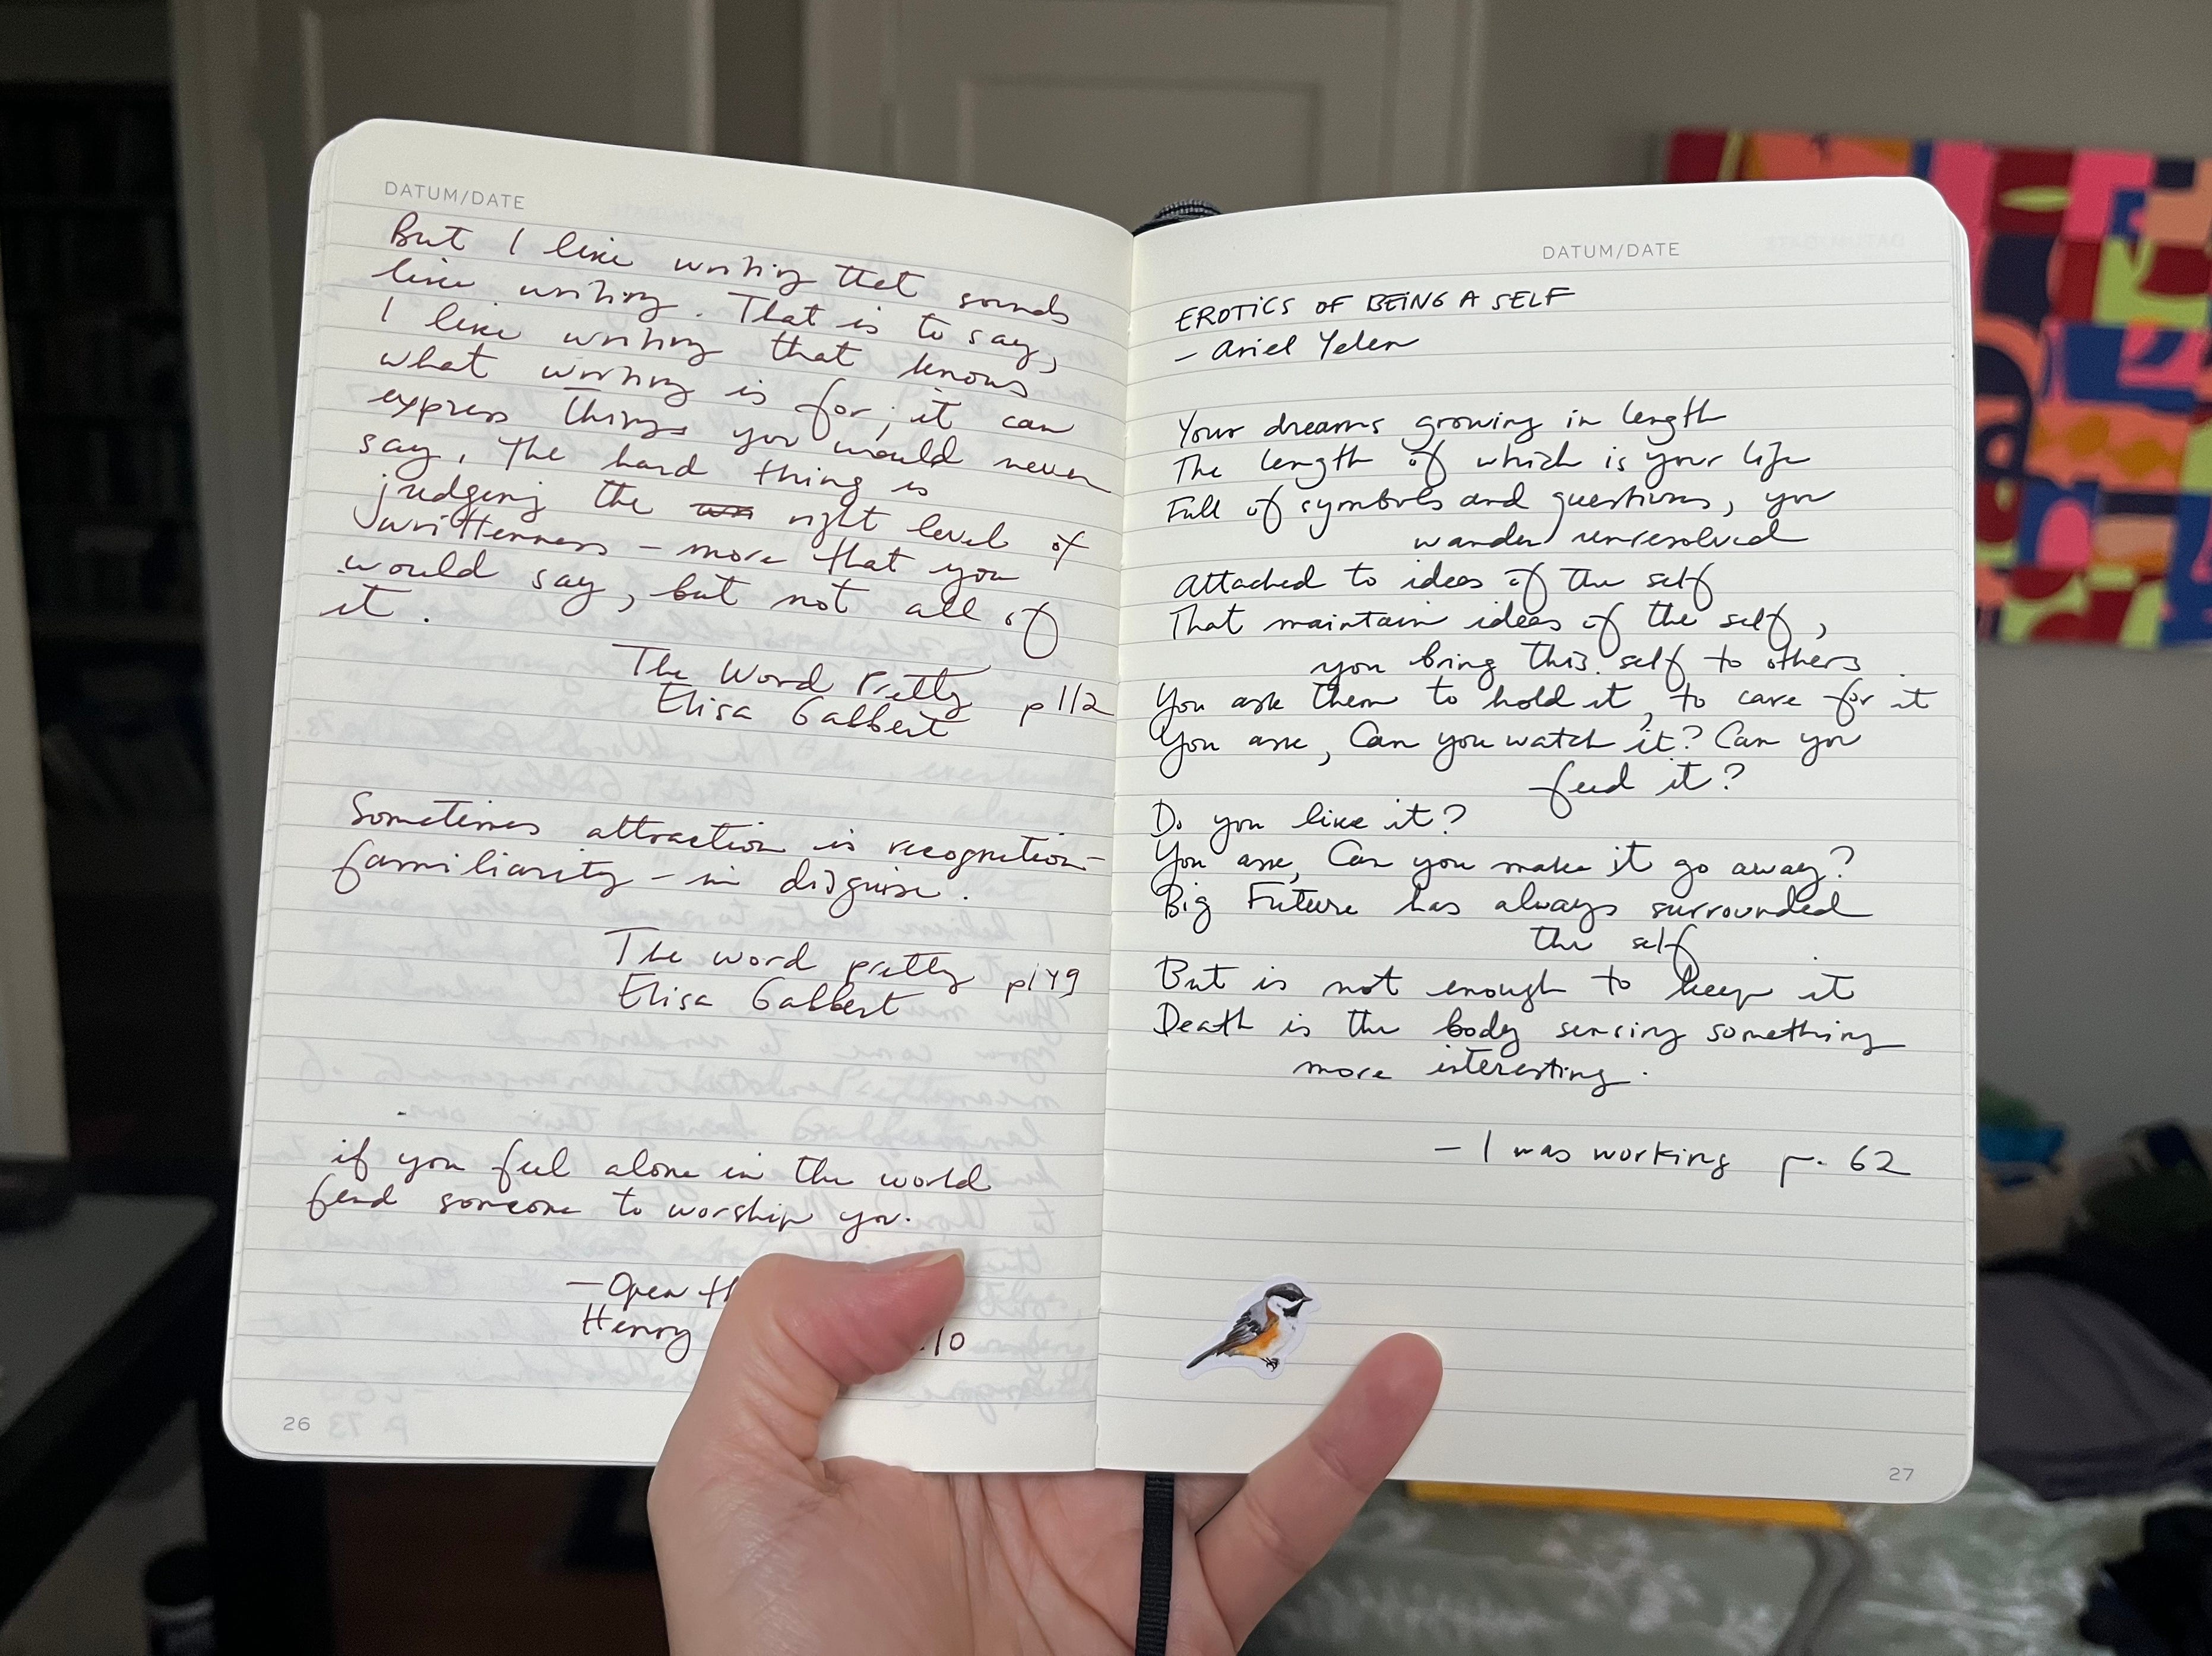 DATUM/DATE
But I like writing that sounds
like writing. That is to say,
I like writing that knows
what writing is for; it can
express things you would never
say. The hard thing is
judging the right level of
writtenness – more that you
would say, but not all of
it.
The Word Pretty
Elisa Gabbert p 112
Sometimes attraction is recognition –
familiarity – in disguise.
The word pretty
Elisa Gabbert p 149
if you feel alone in the world
find someone to worship you.
– Open
Henry 10
26
DATUM/DATE
EROTICS OF BEING A SELF
– Ariel Yelen
Your dreams growing in length
The length of which is your life
Full of symbols and questions, you
wander unresolved
Attached to ideas of the self
That maintain ideas of the self,
you bring this self to others
You ask them to hold it, to care for it
You ask, Can you watch it? Can you
feed it?
Do you like it?
You ask, Can you make it go away?
Big Future has always surrounded
the self
But is not enough to keep it
Death is the body sensing something
more interesting.
– I was working p. 62
27